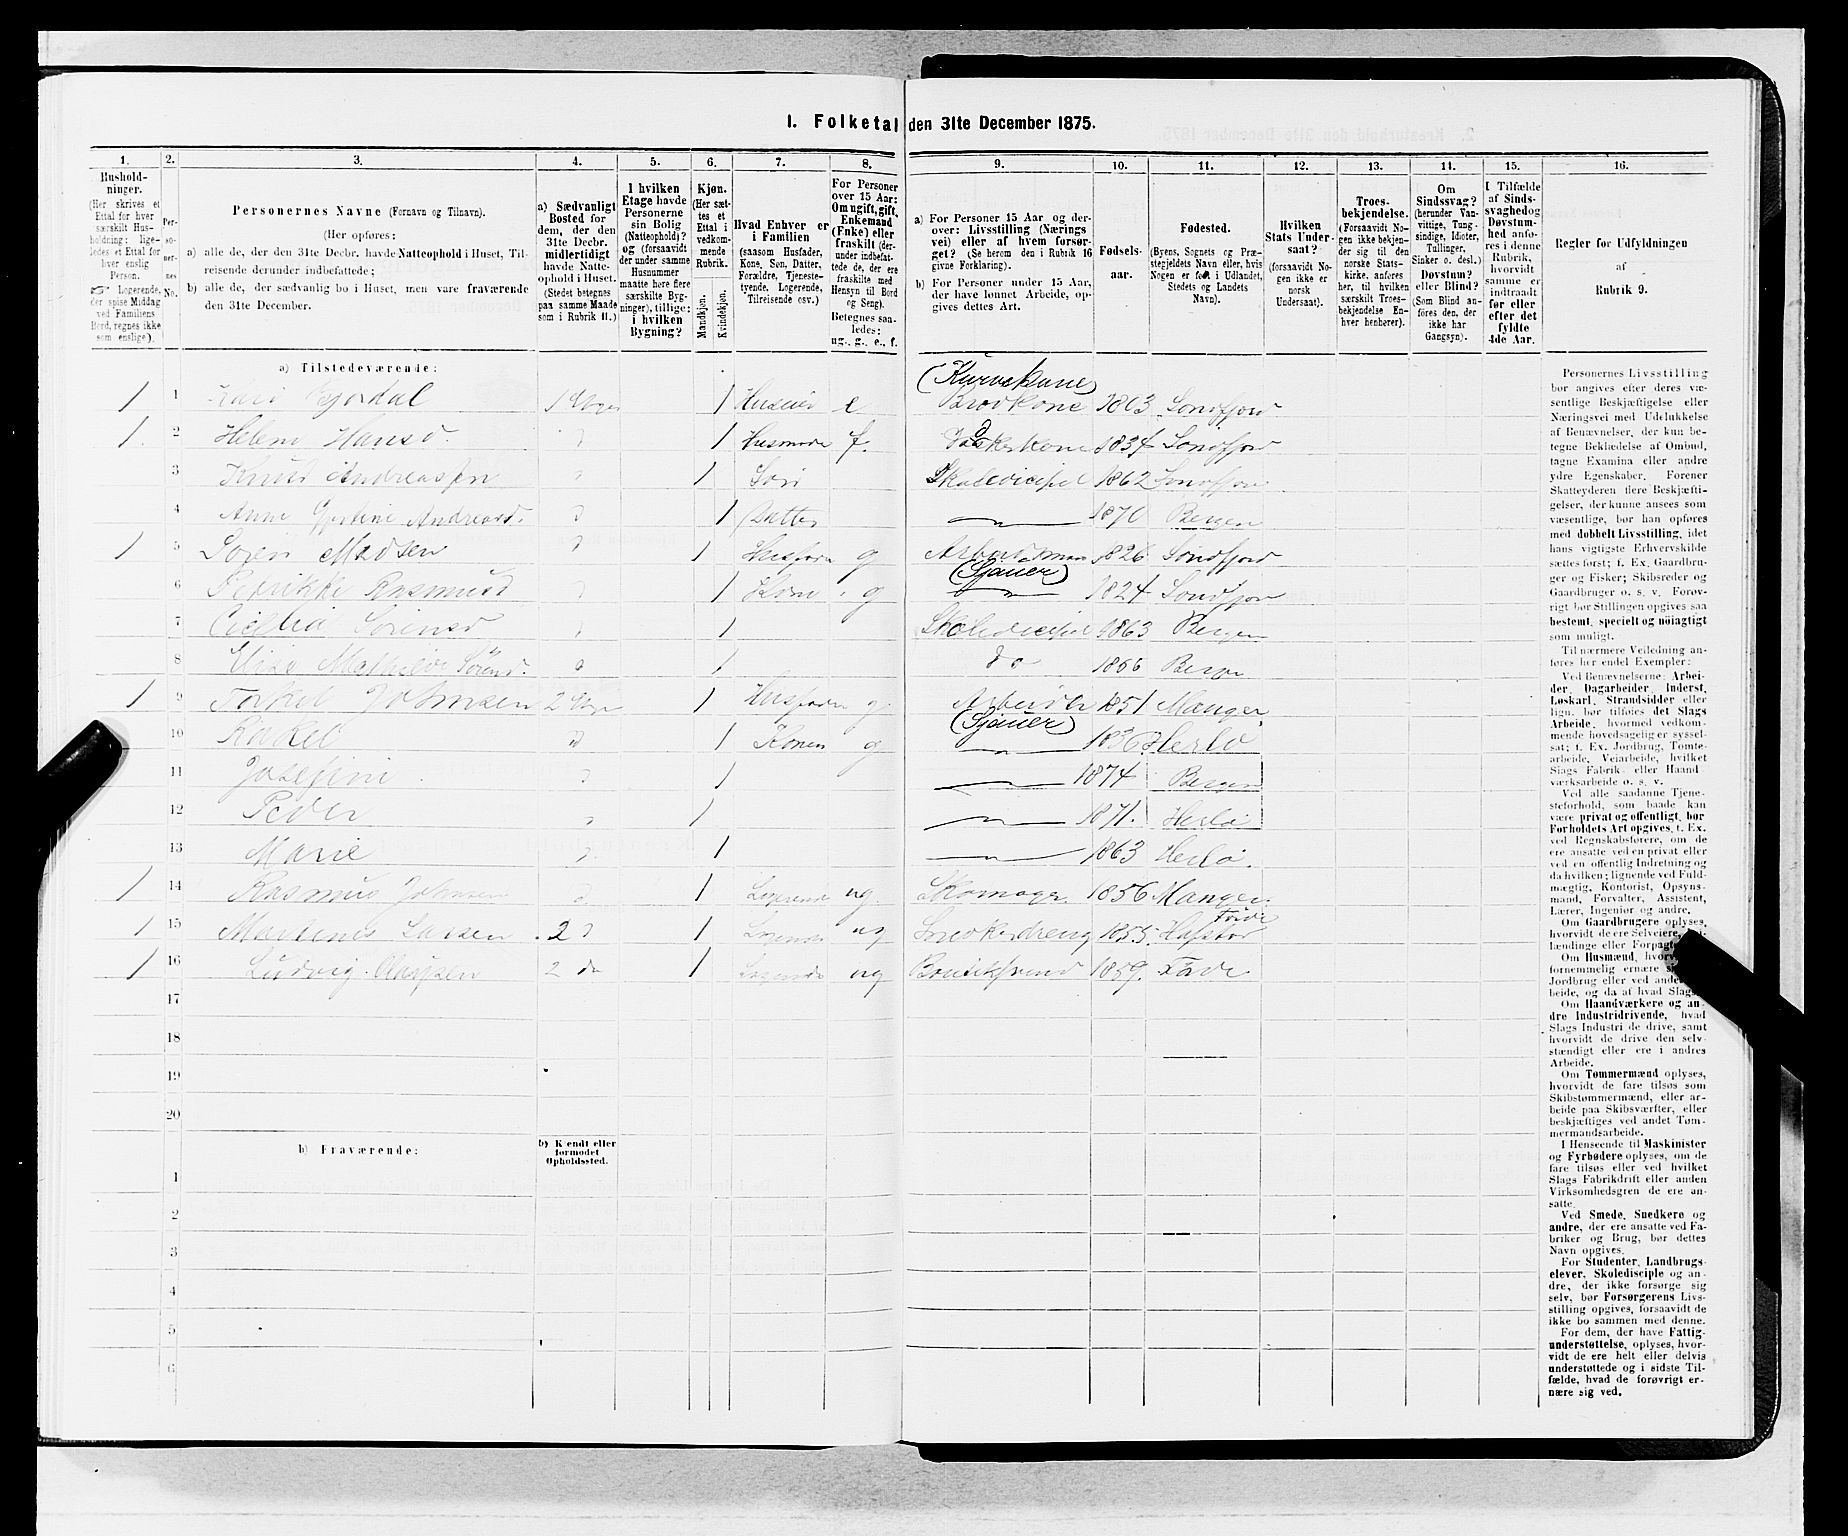 1. Folketal den 31te December 1875.
1. 2. 3. 4. 5. 6. 7. 8. 9. 10. 11. 12. 13. 14. 15. 16.
Hushold-
ninger.
(Her skrives et
Ettal for hver
særskilt Hus-
holdning; lige-
ledes et Ettal for
hver enslig
Person.
Logerende,
der spise Middag
ved Familiens
Bord, regnes ikke
som enslige).
Per-
so-
ner-
nes
No.
Personernes Navne (Fornavn og Tilnavn).
(Her opføres:
a) alle de, der den 31te Decbr. havde Natteophold i Huset, Til-
reisende derunder indbefattede;
b) alle de, der sædvanlig bo i Huset, men vare fraværende
den 31te December.
a) Sædvanligt
Bosted for
dem, der den
31te Decbr.
midlertidigt
havde Natte-
ophold i Huset.
(Stedet betegnes
paa samme Maade
som i Rubrik 11.)
I hvilken
Etage havde
Personerne
sin Bolig
(Natteophold)?
og (forsaavidt
der under samme
Husnummer
maatte høre flere
særskilte Byg-
ninger), tillige:
i hvilken
Bygning?
Kjøn.
(Her sæt-
tes et
Ettal i
vedkom-
mende
Rubrik.
Mandkjøn.
Kvindekjøn.
Hvad Enhver er
i Familien
(saasom Husfader,
Kone, Søn, Datter,
Forældre, Tjeneste-
tyende, Logerende,
Tilreisende osv.)
For Personer
over 15 Aar:
Om ugift, gift,
Enkemand
(Enke) eller
fraskilt (der-
under indbefat-
tede de, der ere
fraskilte med
Hensyn til Bord
og Seng).
Betegnes saa-
ledes:
ug., g., e., f.
a) For Personer 15 Aar og der-
over: Livsstilling (Nærings
vei) eller af hvem forsør-
get? (Se herom den i Rubrik 16
givne Forklaring).
b) For Personer under 15 Aar,
der have lønnet Arbeide, op-
gives dettes Art.
Fødsels-
aar.
Fødested.
(Byens, Sognets og Præ-
stegjeldets Navn eller, hvis
Nogen er født i Udlandet,
Stedets og Landets
Navn).
Hvilken
Stats Under-
saat?
(forsaavidt No-
gen ikke er
norsk
Undersaat).
Troes-
bekjendelse.
(Forsaavidt No-
gen ikke bekjen-
der sig til den
norske Stats-
kirke, anføres
her, til hvilken
særskilt Troes-
bekjendelse En-
hver henhører).
Om
Sindssvag?
(herunder Van-
vittige, Tung-
sindige, Idioter,
Tullinger,
Sinker o. desl.)
Døvstum?
eller Blind?
(Som Blind an-
føres den, der
ikke har
Gangsyn).
I Tilfælde
af Sinds-
svaghed og
Døvstum-
hed anfø-
res i denne
Rubrik,
hvorvidt
samme er
indtraadt
før eller
efter det
fyldte
4de Aar.
Regler for Udfyldningen
af
Rubrik 9.
a) Tilstedeværende:
(Kurvekone)
1 1 Kari Gjerdal 1 Etage 1 Huseier e Brodkone 1803 Sondfjord
1. 2 Helene Hansd. 1 Husmoder f. Vaskerkone 1834 Sondfjord
3 Knud Andreassen 1 Son Skoledicipel 1862 Sondfjord
4 Anne Andreasd. 1 Datter 1870 Bergen
1 5 Soren Madsen 1 Husfader g Arbeidsman 1826 Sondfjord
(Sjauer)
6 Petrikke Rasmusd 1 Kone g 1824 Sondfjord
7 Cicilia Sorensd 1 Skoledicipel 1863 Bergen
8 Elise Mathilde Sørensd. 1 do 1866 Bergen
1 9 Torkel Johnsen 2 Etage 1 Husfader g. Arbeider 1851 Manger
(Sjauer)
10 Rakel 1 Konen g 1836 Herlø
11 Josefine 1 1874 Bergen
12 Peder 1 1871. Herlø
13 Marie 1 1863 Herlø.
1 14 Rasmus Johnsen 1 Logerende ug. Skomager 1856 Manger.
Førde
1 15 Martinus Larsen 2 1 Logerende ug Snedkerdreng 1855. Hafstad
1 16 Ludvig 2 do 1 Logerende ug Boutiksvend 1859. Førde
17
18
19
20
b) Fraværende:
b) Kjendt eller
formodet
Opholdssted.
1
2
3
4
5
6
Personernes Livsstilling
bør angives efter deres væ-
sentlige Beskjæftigelse eller
Næringsvei med Udelukkelse
af Benævnelser, der kun be-
tegne Beklædelse af Ombud,
tagne Examina eller andre
ydre Egenskaber. Forener
Skatteyderen flere Beskjæfti-
gelser, der kunne ansees som
væsentlige, bør han opføres
med dobbelt Livsstilling, idet
hans vigtigste Erhvervskilde
sættes først; f. Ex. Gaardbru-
ger og Fisker; Skibsreder og
Gaardbruger o. s. v. Forøv-
rigt bør Stillingen opgives saa
bestemt, specielt og nøiagtigt
som muligt.
Til nærmere Veiledning an-
føres her endel Exempler:
Ved Benævnelserne: Arbei-
der, Dagarbeider, Inderst,
Løskarl, Strandsidder eller
lign. bør tilføies det Slags
Arbeide, hvormed vedkom-
mende hovedsagelig er syssel-
sat; f. Ex. Jordbrug, Tomte-
arbeide, Veiarbeide, hvilket
Slags Fabrik- eller Haand-
værksarbeide o. s. v.
Ved alle saadanne Tjene-
steforhold, som baade kan
være privat og offentligt, bør
Forholdets Art opgives, t. Ex.
ved Regnskabsførere, om de
ere ansatte ved en privat eller
ved en offentlig Indretning og
da hvilken; lignende ved Fuld-
mægtig, Kontorist, Opsyns-
mand, Forvalter, Assistent,
Lærer, Ingeniør og andre.
Om Gaardbrugere oplyses,
hvorvidt de ere Selveiere,
lændinge eller
Om Husmænd,
fornemmelig ernære
Jordbrug eller ved
beide, og da af hvad
Om Haandværkere og an-
dre Industridrivende, hvad
Slags Industri de drive, samt
hvorvidt de drive den selv-
stændigt eller ere i andres
Arbeide.
Om Tømmermænd oplyses,
hvorvidt de fare tilsøs som
Skibstømmermænd, eller ar-
beide paa Skibsværfter, eller
beskjæftiges ved andet Tøm-
mermandsarbeide.
I Henseende til Maskinister
og Fyrbødere oplyses, om de
fare tilsøs eller ved hvilket
Slags Fabrikdrift eller anden
Virksomhedsgren de ere an-
satte.
Ved Smede, Snedkere og
andre, der ere ansatte ved Fa-
briker og Brug, bør dettes
Navn opgives.
For Studenter, Landbrugs-
elever, Skoledisciple og an-
dre, der ikke forsørge sig
selv, bør Forsørgerens Livs-
stilling opgives, forsaavidt de
ikke bo sammen med denne.
For dem, der have Fattig-
understøttelse, oplyses, hvor-
vidt de ere helt eller delvis
understøttede og i sidste Til-
fælde, hvad de forøvrigt er-
nære sig ved.